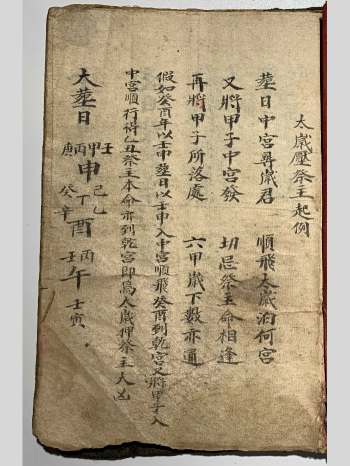 太歲壓祭主起例
葬日中宮尋歲君 順飛太歲泊何宮
又將甲子中宮發 切忌祭主命相逢
再將甲子所落處 六甲歲下数亦通
假如癸酉年以壬申葬日以壬申入中宮順飛癸酉到乾宮又將甲子入
中宮順行得乙丑祭主本命亦到乾宮即爲人歲押祭主大凶
大葬日 壬甲丙庚申 己乙丁癸辛酉 丙壬午 壬寅